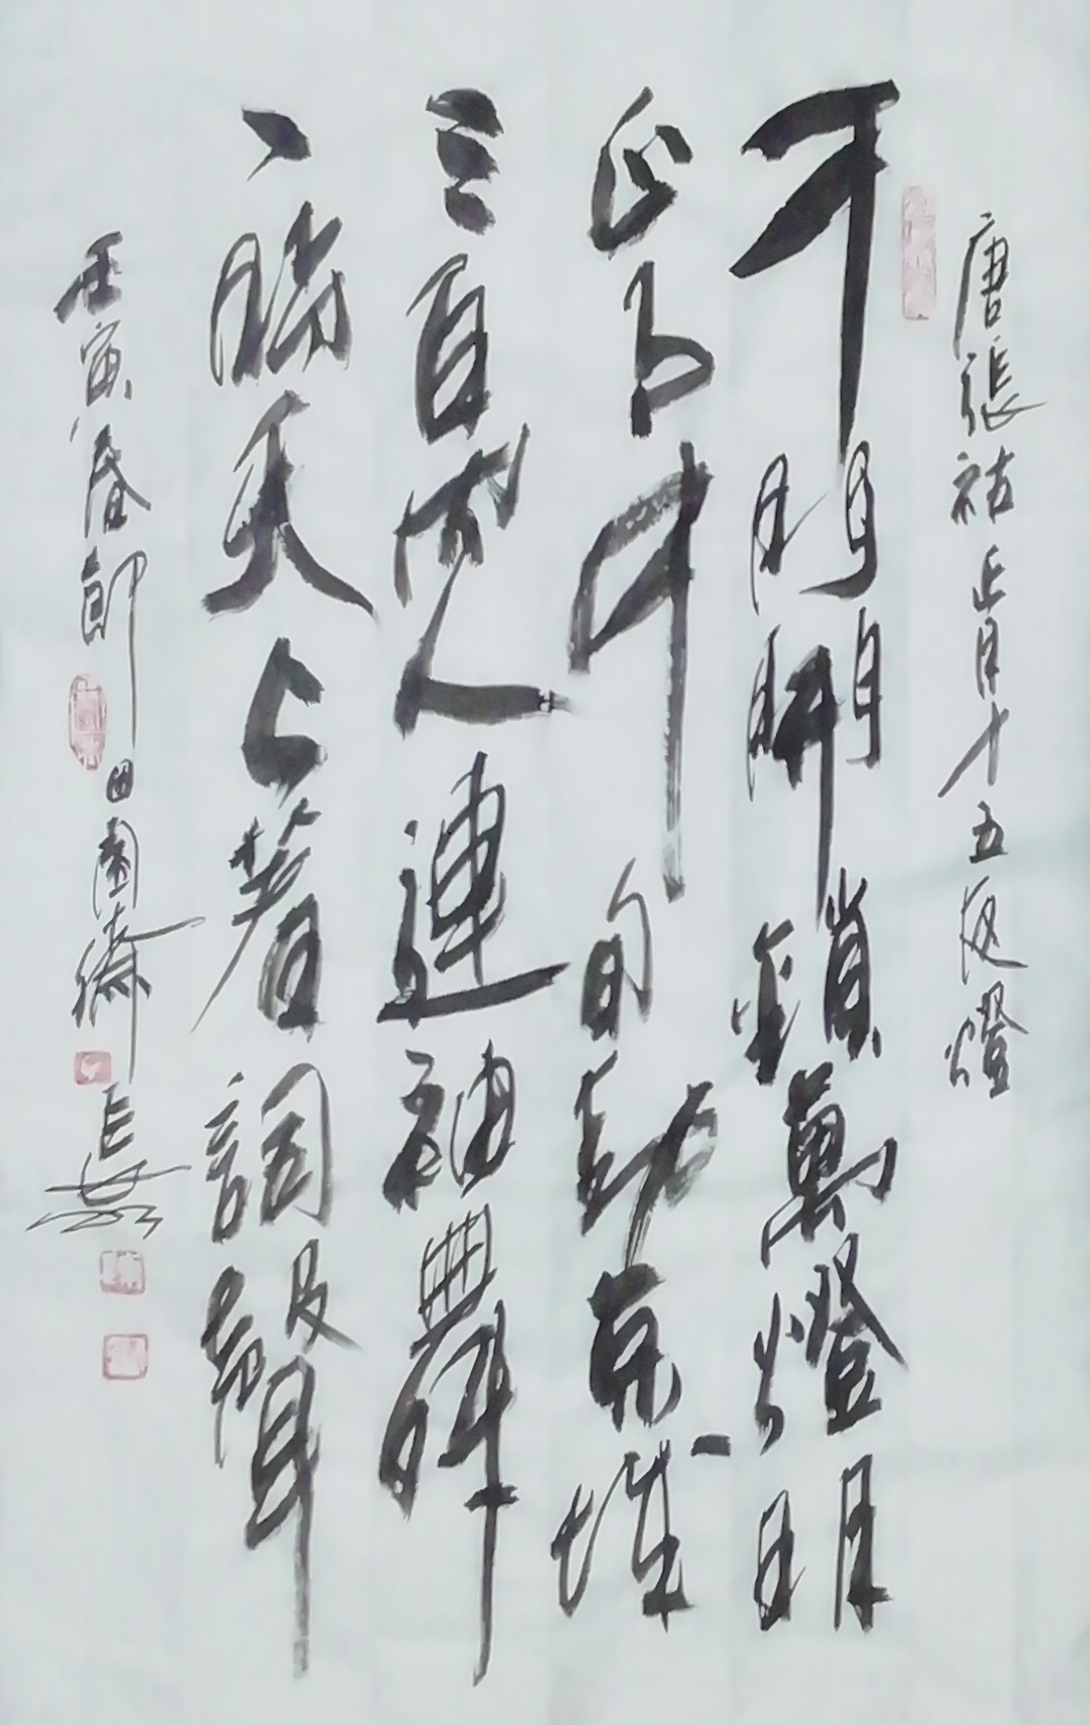 唐張祜正月十五夜燈
千門開鎖萬燈明
正月中旬動京城
三百内人連袖舞
一時天上著詞聲
壬寅春節田園齋